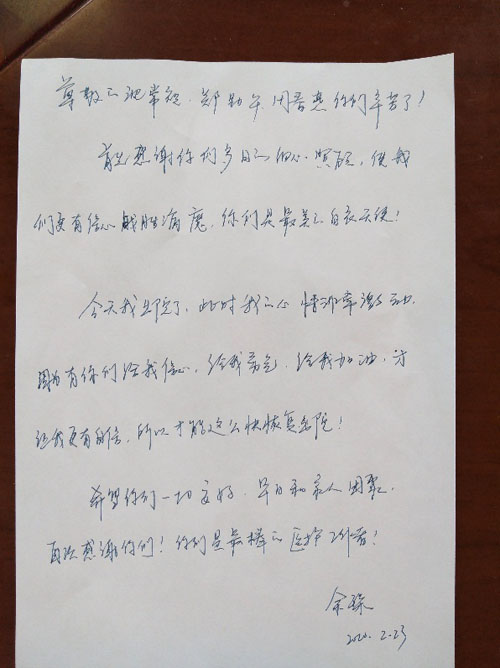 尊敬的 郑 你们辛苦了!
首先感谢你们多日的细心照顾,使我
们更有信心战胜病魔,你们是最美的白衣天使!
今天我出院了,此时我的心情非常激动,
因为有你们给我信心,给我勇气,给我加油,
让我更有自信,所以才能这么快恢复出院!
希望你们一切安好,早日和家人团聚,
再次感谢你们!你们是最棒的医护工作者!
余
2020.2.23